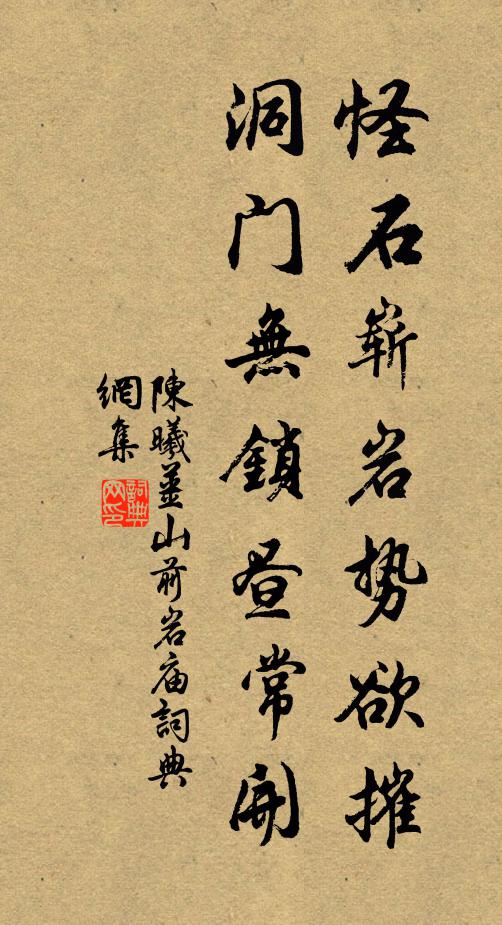 怪石崭岩势欲摧
洞门無鎖昼常開
陳曦薑山前岩庙詞典
網集
詞典网印